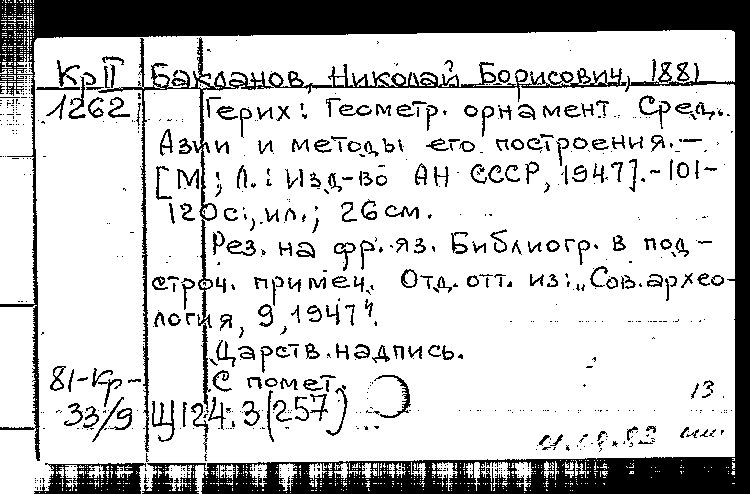 Кр II Бакланов, Николай Борисович, 1881
1262 Герих: Геометр. орнамент Сред.
Азии и методы его построения. —
[М.; Л.: Изд-во АН СССР, 1947]. - 101-
120с., ил.; 26см.
Рез. на фр. яз. Библиогр. в под-
строч. примеч. Отд. отт. из: „Сов. архео-
логия, 9, 1947".
Дарств. надпись.
81-Кр- С помет.
33/9 Щ124.3(257)
13